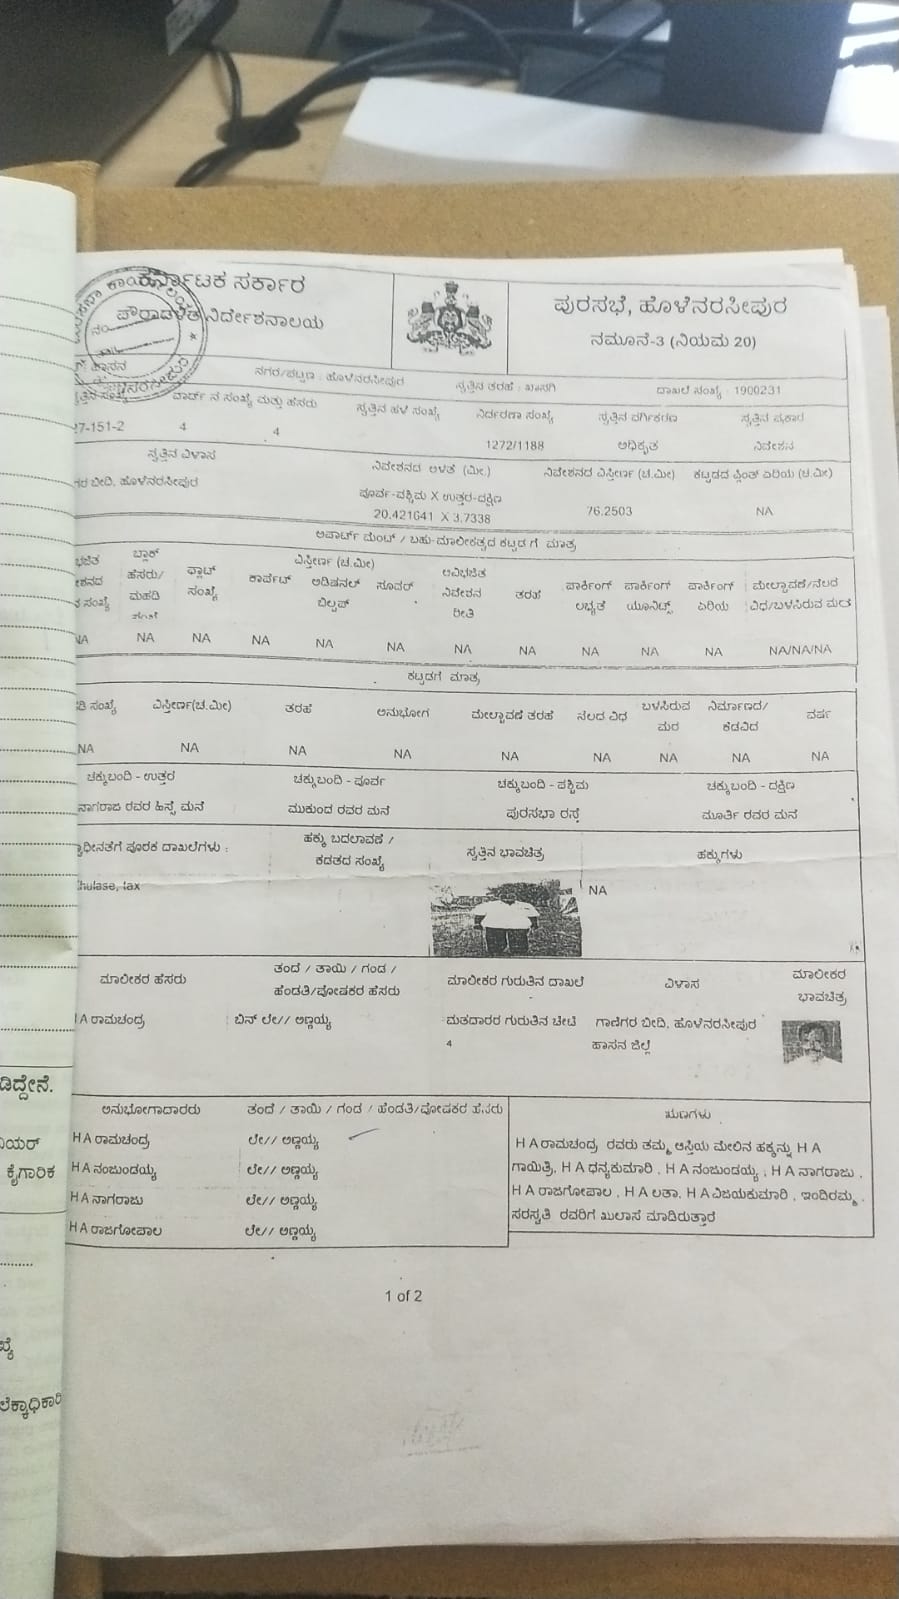 ಕರ್ನಾಟಕ ಸರ್ಕಾರ
ಪೌರಾಡಳಿತ ನಿರ್ದೇಶನಾಲಯ
ಪುರಸಭೆ, ಹೊಳೆನರಸೀಪುರ
ನಮೂನೆ-3 (ನಿಯಮ 20)
ನಗರ/ಪಟ್ಟಣ : ಹೊಳೆನರಸೀಪುರ ಸ್ವತ್ತಿನ ತರಹೆ : ಖಾಸಗಿ ದಾಖಲೆ ಸಂಖ್ಯೆ : 1900231
ಸ್ವತ್ತಿನ ಸಂಖ್ಯೆ ವಾರ್ಡ್ ನ ಸಂಖ್ಯೆ ಮತ್ತು ಹೆಸರು ಸ್ವತ್ತಿನ ಹಳೆ ಸಂಖ್ಯೆ ನಿರ್ದರಣಾ ಸಂಖ್ಯೆ ಸ್ವತ್ತಿನ ವರ್ಗಿಕರಣ ಸ್ವತ್ತಿನ ಪ್ರಕಾರ
27-151-2 4 4 1272/1188 ಅಧಿಕೃತ ನಿವೇಶನ
ಸ್ವತ್ತಿನ ವಿಳಾಸ ನಿವೇಶನದ ಅಳತೆ (ಮೀ.) ನಿವೇಶನದ ವಿಸ್ತೀರ್ಣ (ಚ.ಮೀ) ಕಟ್ಟಡದ ಪ್ಲಿಂತ್ ಏರಿಯ (ಚ.ಮೀ)
ಗರ ಬೀದಿ, ಹೊಳೆನರಸೀಪುರ ಪೂರ್ವ-ಪಶ್ಚಿಮ X ಉತ್ತರ-ದಕ್ಷಿಣ
20.421641 X 3.7338 76.2503 NA
ಅಪಾರ್ಟ್ ಮೆಂಟ್ / ಬಹು-ಮಾಲೀಕತ್ವದ ಕಟ್ಟಡ ಗೆ ಮಾತ್ರ
ಬ್ಲಾಕ್ ವಿಸ್ತೀರ್ಣ (ಚ.ಮೀ) ಅವಿಭಜಿತ
ಹೆಸರು/ ಫ್ಲಾಟ್ ಕಾರ್ಪೆಟ್ ಅಡಿಷನಲ್ ಸೂಪರ್ ನಿವೇಶನ ತರಹೆ ಪಾರ್ಕಿಂಗ್ ಪಾರ್ಕಿಂಗ್ ಪಾರ್ಕಿಂಗ್ ಮೇಲ್ಚಾವಣಿ/ನೆಲದ
ನ ಸಂಖ್ಯೆ ಮಹಡಿ ಸಂಖ್ಯೆ ಬಿಲ್ಟಪ್ ರೀತಿ ಲಭ್ಯತೆ ಯೂನಿಟ್ಸ್ ಏರಿಯ ವಿಧ/ಬಳಸಿರುವ ಮರ
NA NA NA NA NA NA NA NA NA NA NA NA/NA/NA
ಕಟ್ಟಡಗೆ ಮಾತ್ರ
ಡಿ ಸಂಖ್ಯೆ ವಿಸ್ತೀರ್ಣ(ಚ.ಮೀ) ತರಹೆ ಅನುಭೋಗ ಮೇಲ್ಚಾವಣಿ ತರಹೆ ನೆಲದ ವಿಧ ಬಳಸಿರುವ ಮರ ನಿರ್ಮಾಣದ/ ಕೆಡವಿದ ವರ್ಷ
NA NA NA NA NA NA NA NA NA
ಚಕ್ಕುಬಂದಿ - ಉತ್ತರ ಚಕ್ಕುಬಂದಿ - ಪೂರ್ವ ಚಕ್ಕುಬಂದಿ - ಪಶ್ಚಿಮ ಚಕ್ಕುಬಂದಿ - ದಕ್ಷಿಣ
ನಾಗರಾಜ ರವರ ಹಿಸ್ಸೆ ಮನೆ ಮುಕುಂದ ರವರ ಮನೆ ಪುರಸಭಾ ರಸ್ತೆ ಮೂರ್ತಿ ರವರ ಮನೆ
ಸ್ವಾಧೀನತೆಗೆ ಪೂರಕ ದಾಖಲೆಗಳು : ಹಕ್ಕು ಬದಲಾವಣೆ / ಕಡತದ ಸಂಖ್ಯೆ ಸ್ವತ್ತಿನ ಭಾವಚಿತ್ರ ಹಕ್ಕುಗಳು
khulase, tax NA
ಮಾಲೀಕರ ಹೆಸರು ತಂದೆ / ತಾಯಿ / ಗಂಡ / ಹೆಂಡತಿ/ಪೋಷಕರ ಹೆಸರು ಮಾಲೀಕರ ಗುರುತಿನ ದಾಖಲೆ ವಿಳಾಸ ಮಾಲೀಕರ ಭಾವಚಿತ್ರ
H A ರಾಮಚಂದ್ರ ಬಿನ್ ಲೇ// ಅಣ್ಣಯ್ಯ ಮತದಾರರ ಗುರುತಿನ ಚೀಟಿ ಗಾಣಿಗರ ಬೀದಿ, ಹೊಳೆನರಸೀಪುರ
4 ಹಾಸನ ಜಿಲ್ಲೆ
ಅನುಭೋಗಾದಾರರು ತಂದೆ / ತಾಯಿ / ಗಂಡ / ಹೆಂಡತಿ/ಪೋಷಕರ ಹೆಸರು ಋಣಗಳು
H A ರಾಮಚಂದ್ರ ಲೇ// ಅಣ್ಣಯ್ಯ
H A ನಂಜುಂಡಯ್ಯ ಲೇ// ಅಣ್ಣಯ್ಯ
H A ನಾಗರಾಜು ಲೇ// ಅಣ್ಣಯ್ಯ
H A ರಾಜಗೋಪಾಲ ಲೇ// ಅಣ್ಣಯ್ಯ
H A ರಾಮಚಂದ್ರ ರವರು ತಮ್ಮ ಆಸ್ತಿಯ ಮೇಲಿನ ಹಕ್ಕನ್ನು H A
ಗಾಯಿತ್ರಿ, H A ಧನ್ಯಕುಮಾರಿ , H A ನಂಜುಂಡಯ್ಯ , H A ನಾಗರಾಜು ,
H A ರಾಜಗೋಪಾಲ , H A ಲತಾ, H A ವಿಜಯಕುಮಾರಿ , ಇಂದಿರಮ್ಮ ,
ಸರಸ್ವತಿ ರವರಿಗೆ ಖುಲಾಸೆ ಮಾಡಿರುತ್ತಾರೆ
1 of 2